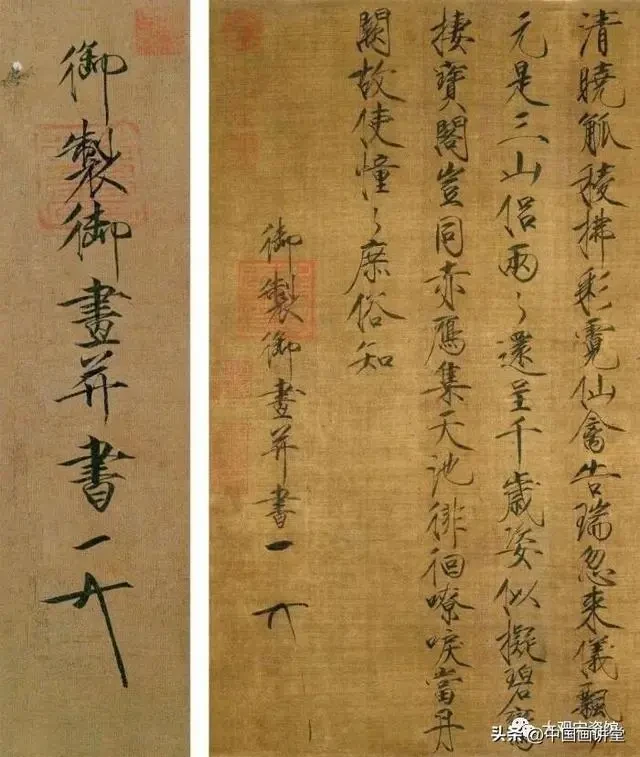 清曉觚稜拂彩霓仙禽告瑞忽來儀飄〻
元是三山侶兩〻還呈千歲姿似擬碧鸞
棲寶閣豈同赤鴈集天池徘徊嘹唳當丹
闕故使憧〻庶俗知
御製御畫并書
御製御畫并書
头条@中国画讲堂